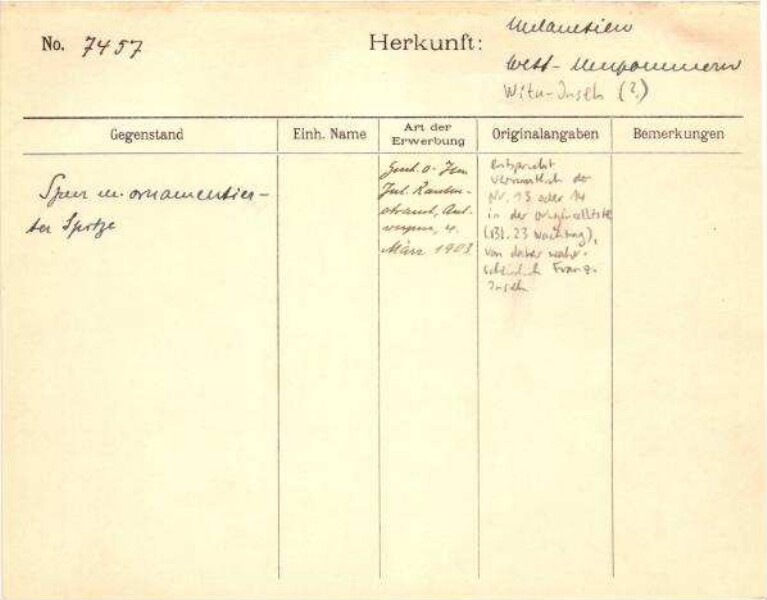 No. 7457
Herkunft:
Melanesien
West-Neupommern
Witu-Inseln (?)
Gegenstand
Einh. Name
Art der
Erwerbung
Originalangaben
Bemerkungen
Speer m. ornamentier-
ter Spitze
Gesch. v. Hrn
Jul. Rauten-
strauch, Ant-
werpen, 4.
März 1903
entspricht
vermutlich der
Nr. 13 oder 14
in der Originalliste
(Bl. 23 Nachtrag),
von daher wahr-
scheinlich Franz.
Inseln